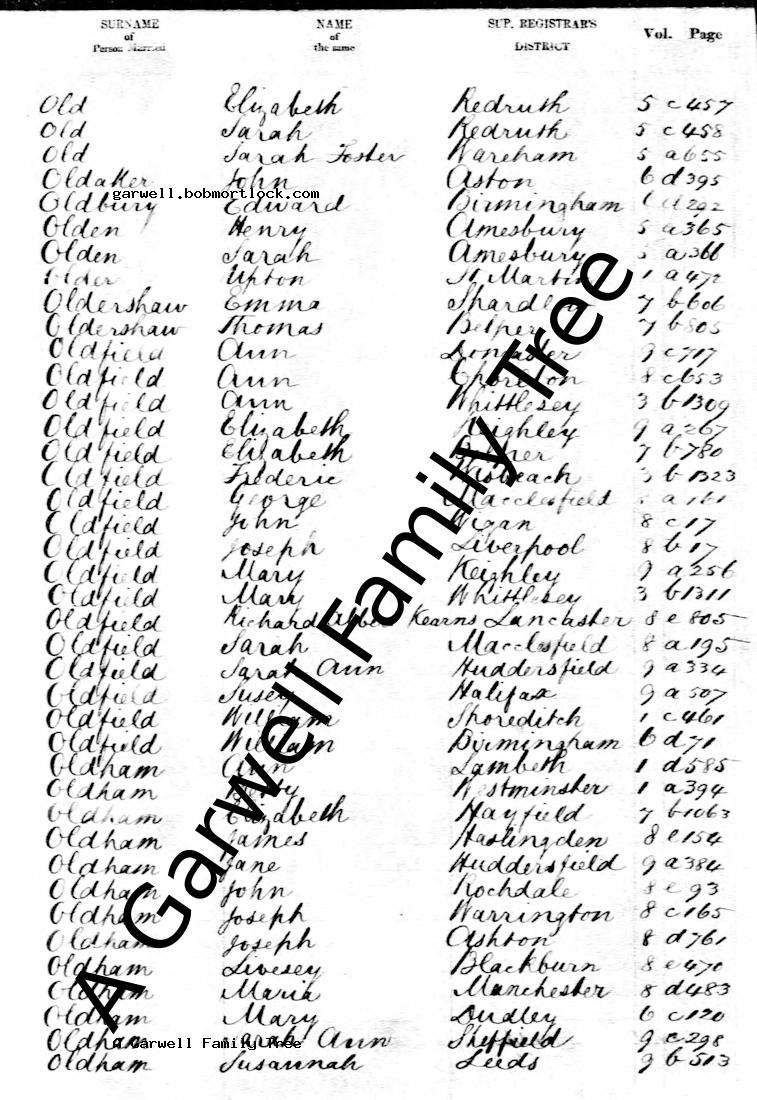 SURNAME of Person Married NAME of the same SUP. REGISTRAR'S DISTRICT Vol. Page
Old Elizabeth Redruth 5 c 457
Old Sarah Redruth 5 c 458
Old Sarah Foster Wareham 5 a 655
Oldaker John Aston 6 d 395
garwell.bobmortlock.com
Oldbury Edward Birmingham 6 d 292
Olden Henry Amesbury 5 a 365
Olden Sarah Amesbury 5 a 366
Older Upton St Martin 1 a 472
Oldershaw Emma Shardlow 7 b 606
Oldershaw Thomas Belper 7 b 805
Oldfield Ann Doncaster 9 c 717
Oldfield Ann Chorlton 8 c 653
Oldfield Ann Whittlesey 3 b 1309
Oldfield Elizabeth Keighley 9 a 267
Oldfield Elizabeth 7 b 780
Oldfield Frederic Wisbeach 3 b 1323
Oldfield George Macclesfield a 161
Oldfield John Wigan 8 c 17
Oldfield Joseph Liverpool 8 b 17
Oldfield Mary Keighley 9 a 256
Oldfield Mary Whittlesey 3 b 1311
Oldfield Richard Kearns Lancaster 8 e 805
Oldfield Sarah Macclesfield 8 a 195
Oldfield Sarah Ann Huddersfield 9 a 334
Oldfield Susey Halifax 9 a 507
Oldfield William Shoreditch 1 c 461
Oldfield William Birmingham 6 d 71
Oldham Ann Lambeth 1 d 585
Oldham Westminster 1 a 394
Oldham Elizabeth Hayfield 7 b 1063
Oldham James Haslingden 8 e 154
Oldham Jane Huddersfield 9 a 384
Oldham John Rochdale 8 e 93
Oldham Joseph Warrington 8 c 165
Oldham Joseph Ashton 8 d 761
Oldham Livesey Blackburn 8 e 470
Oldham Maria Manchester 8 d 483
Oldham Mary Dudley 6 c 120
Oldham Sarah Ann Sheffield 9 c 298
A Garwell Family Tree
Oldham Susannah Leeds 9 b 513
A Garwell Family Tree